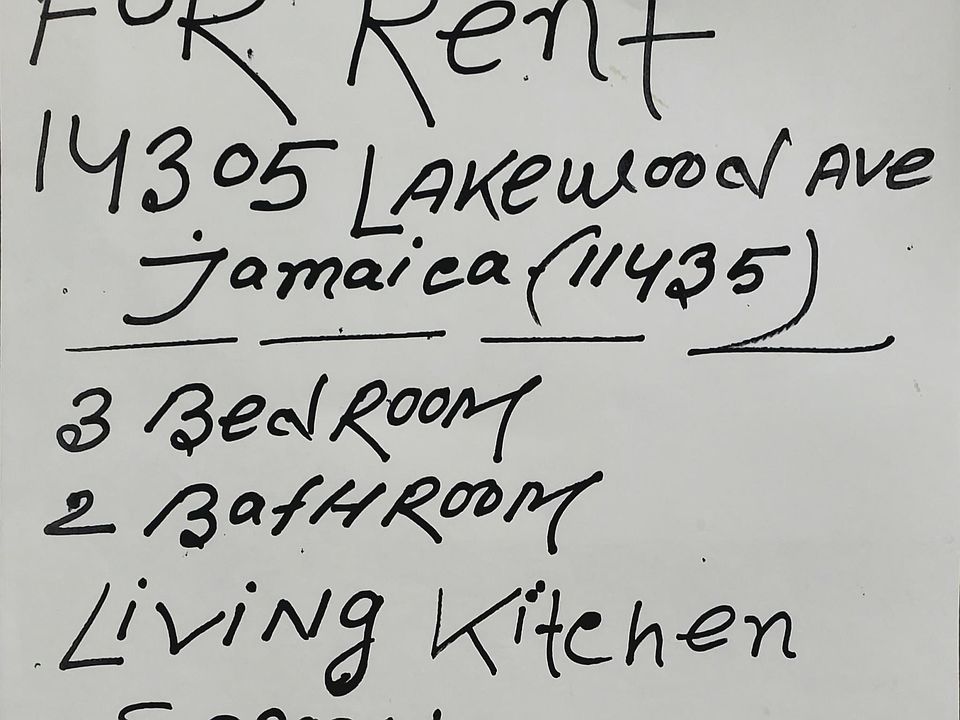 FOR Rent
14305 LAKewood Ave
Jamaica (11435)
3 BedRoom
2 BatHRoom
LiViNg Kitchen